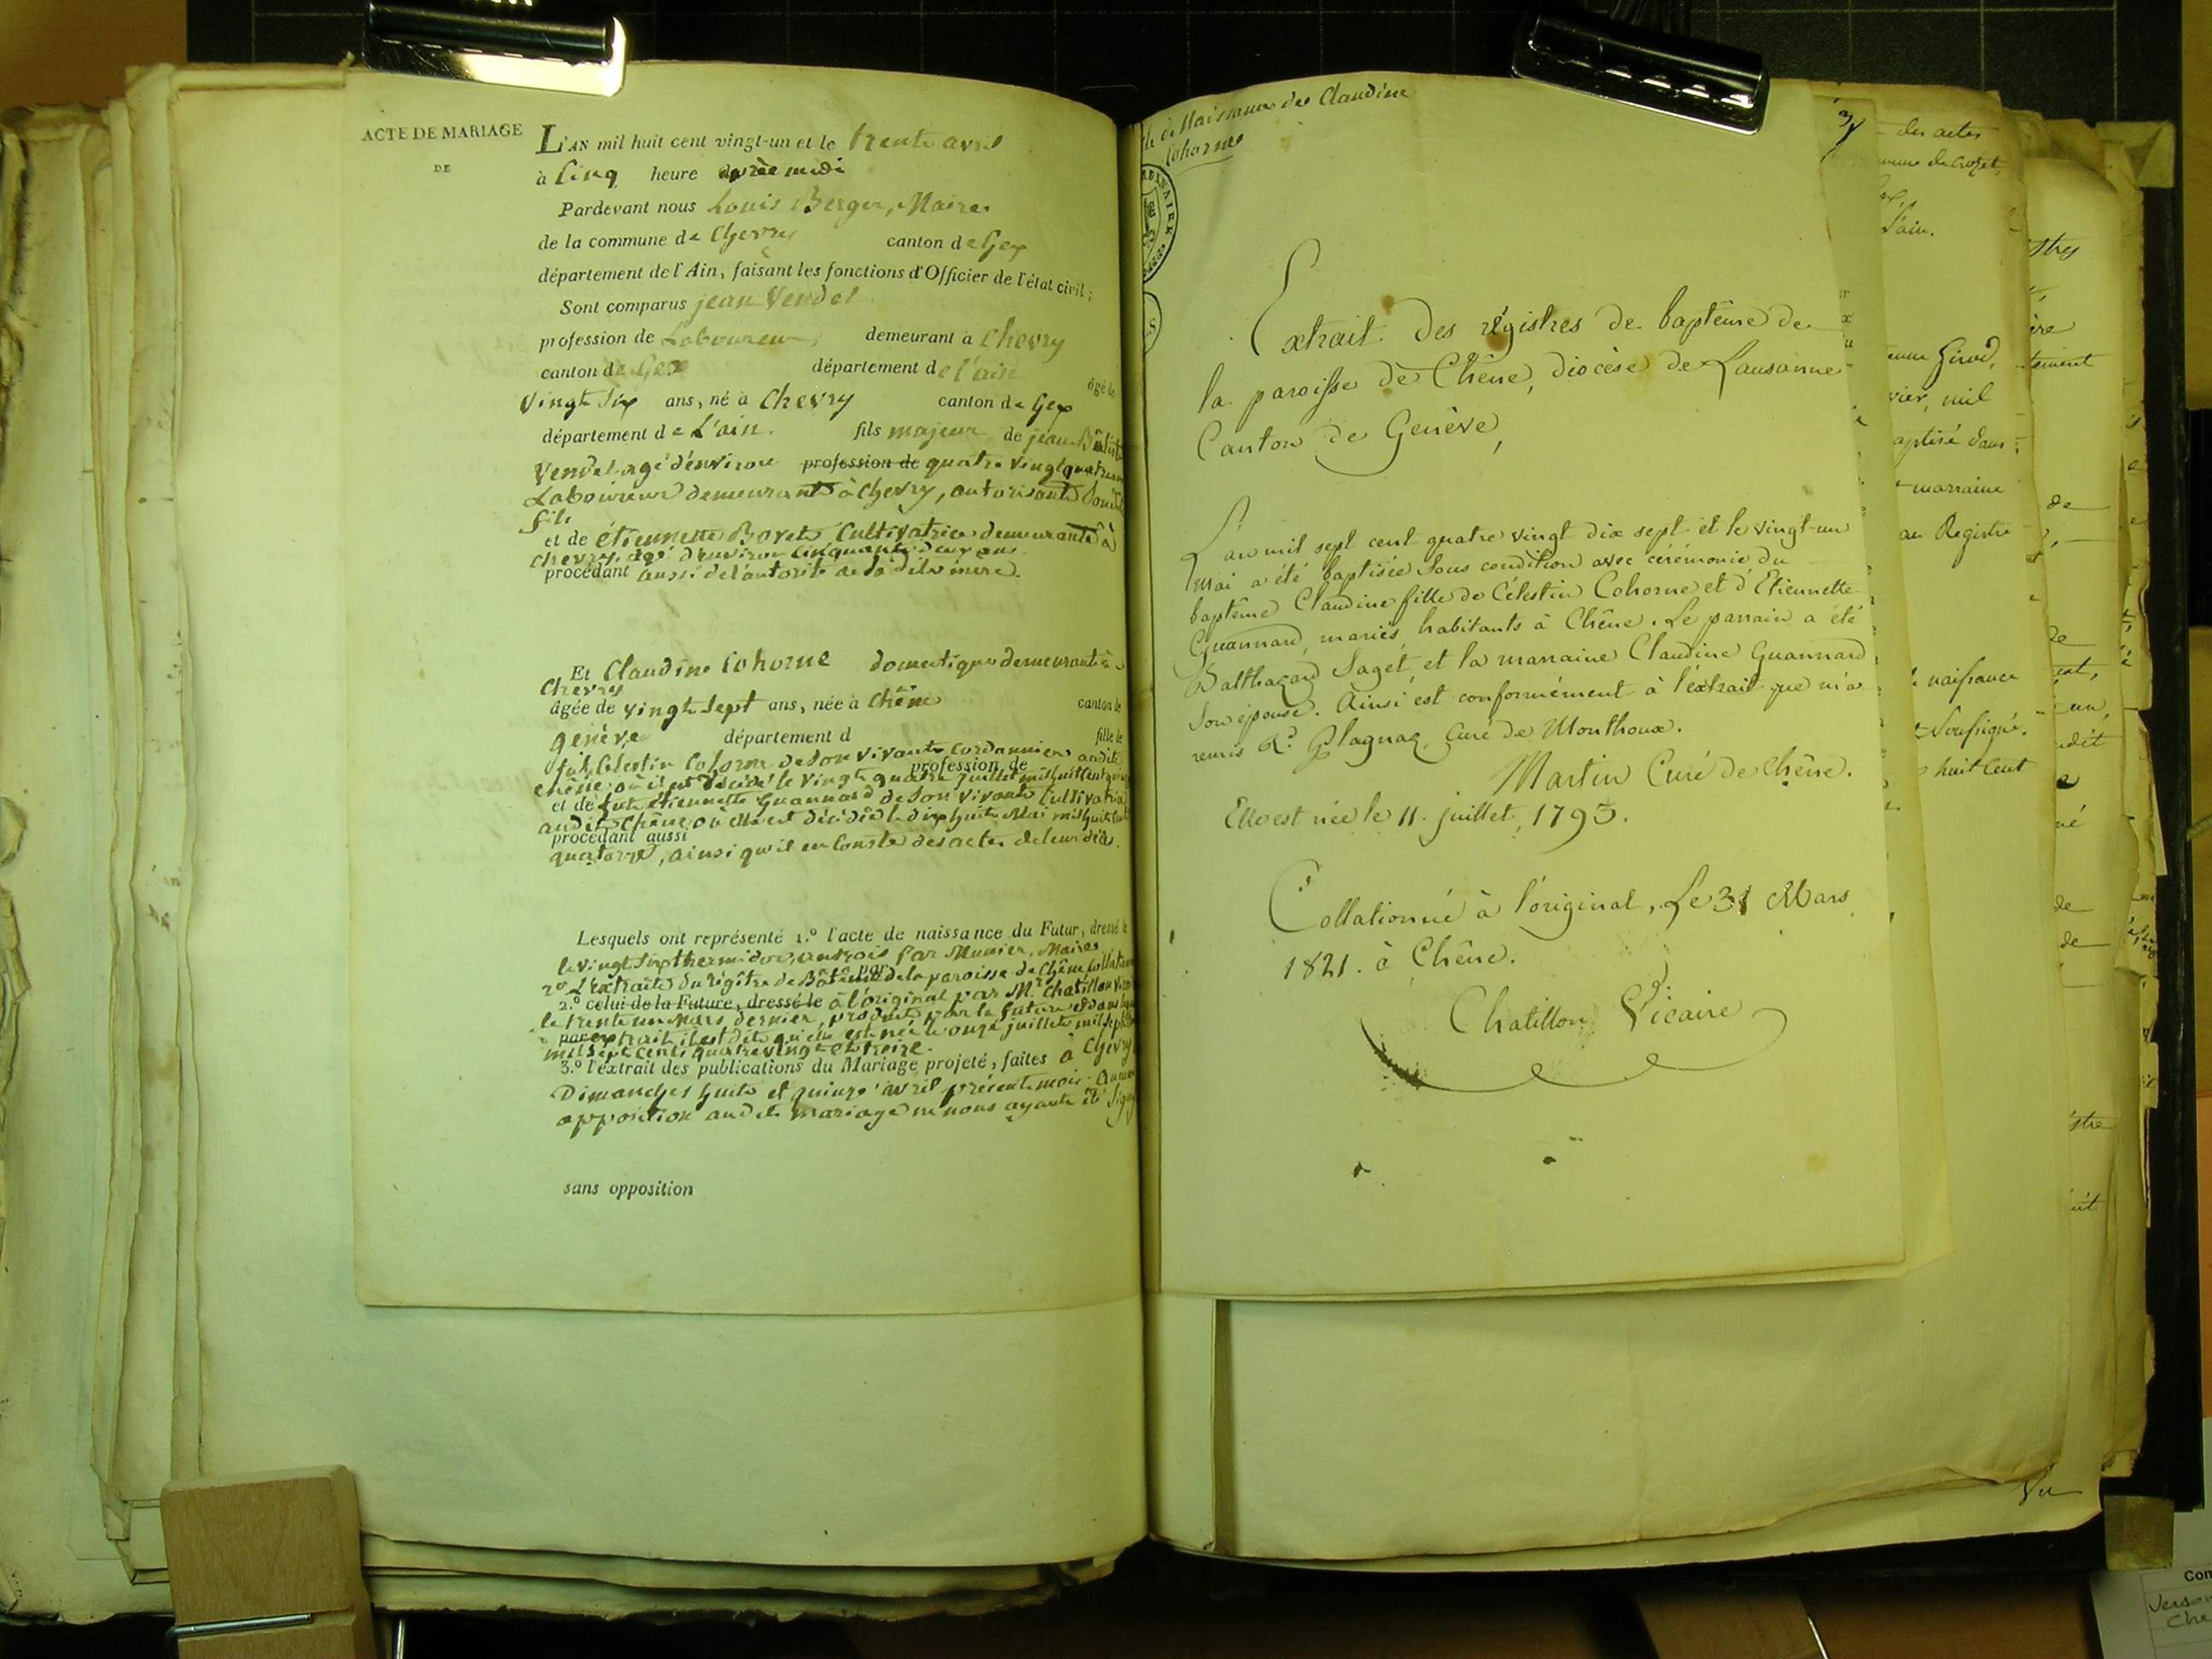 ACTE DE MARIAGE
DE
L'AN mil huit cent vingt-un et le trente avril
à Cinq heure après midi
Pardevant nous Louis Berger, Maire
de la commune de Chevry canton de Gex
département de l'Ain, faisant les fonctions d'Officier de l'état civil;
Sont comparus jean Vendel
profession de Laboureur, demeurant à Chevry
canton de Gex département de l'ain âgé de
vingt six ans, né à Chevry canton de Gex
département de L'ain. fils majeur de jean Bâtiste
Vendel agé d'environ profession de quatre vingt quatre ans
Laboureur demeurant à Chevry, autorisant Son dit
fils
et de étiennette Boret Cultivatrice demeurante à
Chevry, agé d'environ cinquante deux ans
procédant aussi de l'autorité de sa dite mère.
Et Claudine Cohorne domestique demeurant à
Chevry
âgée de vingt sept ans, née à Chêne canton de
genève département d fille de
fut Célestin Cohorne de Son vivant Cordonnier audit
profession de
chêne où il est décédé le vingt quatre juillet mil huit cent
et de fut étiennette Guannard de Son vivant Cultivatrice
audit Chêne, où elle est décédée le dix huit Mai mil huit cent
procédant aussi
quatorze, ainsi qu'il en Conste des actes de leur décès.
Lesquels ont représenté 1.º l'acte de naissance du Futur, dressé le
le vingt Six thermidor an trois par Munier, Maire
par
2º L'extrait du régître de Bâtême de la paroisse de Chêne Collationné
2.º celui de la Future, dressé le à l'original par Mr. Chatillon Vicaire
le trente un Mars dernier, produit par la future et dans lequel
par extrait il est dit qu'elle est née le onze juillet mil sept
mil sept cent quatre vingt et treize.
3.º l'extrait des publications du Mariage projeté, faites à Chevry
Dimanches huit et quinze avril présent mois aucune
opposition audit mariage ne nous ayant été Signi
sans opposition
de Naissance de Claudine
Cohorne
Extrait des régistres de baptême de
la paroisse de Chêne, diocèse de Lausanne
Canton de Genève,
L'an mil sept cent quatre vingt dix sept et le vingt-un
mai a été baptisée sous condition avec cérémonie du
baptême Claudine fille de Célestin Cohorne et d'Etiennette
Guannard, mariés, habitants à Chêne. Le parrain a été
Balthazard Saget, et la marraine Claudine Guannard
son épouse. Ainsi est conformément à l'extrait que m'a
remis Rd. Plagnaz, Curé de Monthoux.
Martin Curé de Chêne.
Elle est née le 11. juillet, 1793.
Collationné à l'original, Le 31 Mars
1821. à Chêne.
Chatillon Vicaire
des actes
de Crozet,
L'ain.
Girod,
mil
aptisé dans
marraine
au Registre
naissance
Soussigné.
huit Cent
de
de
de
de
Vu